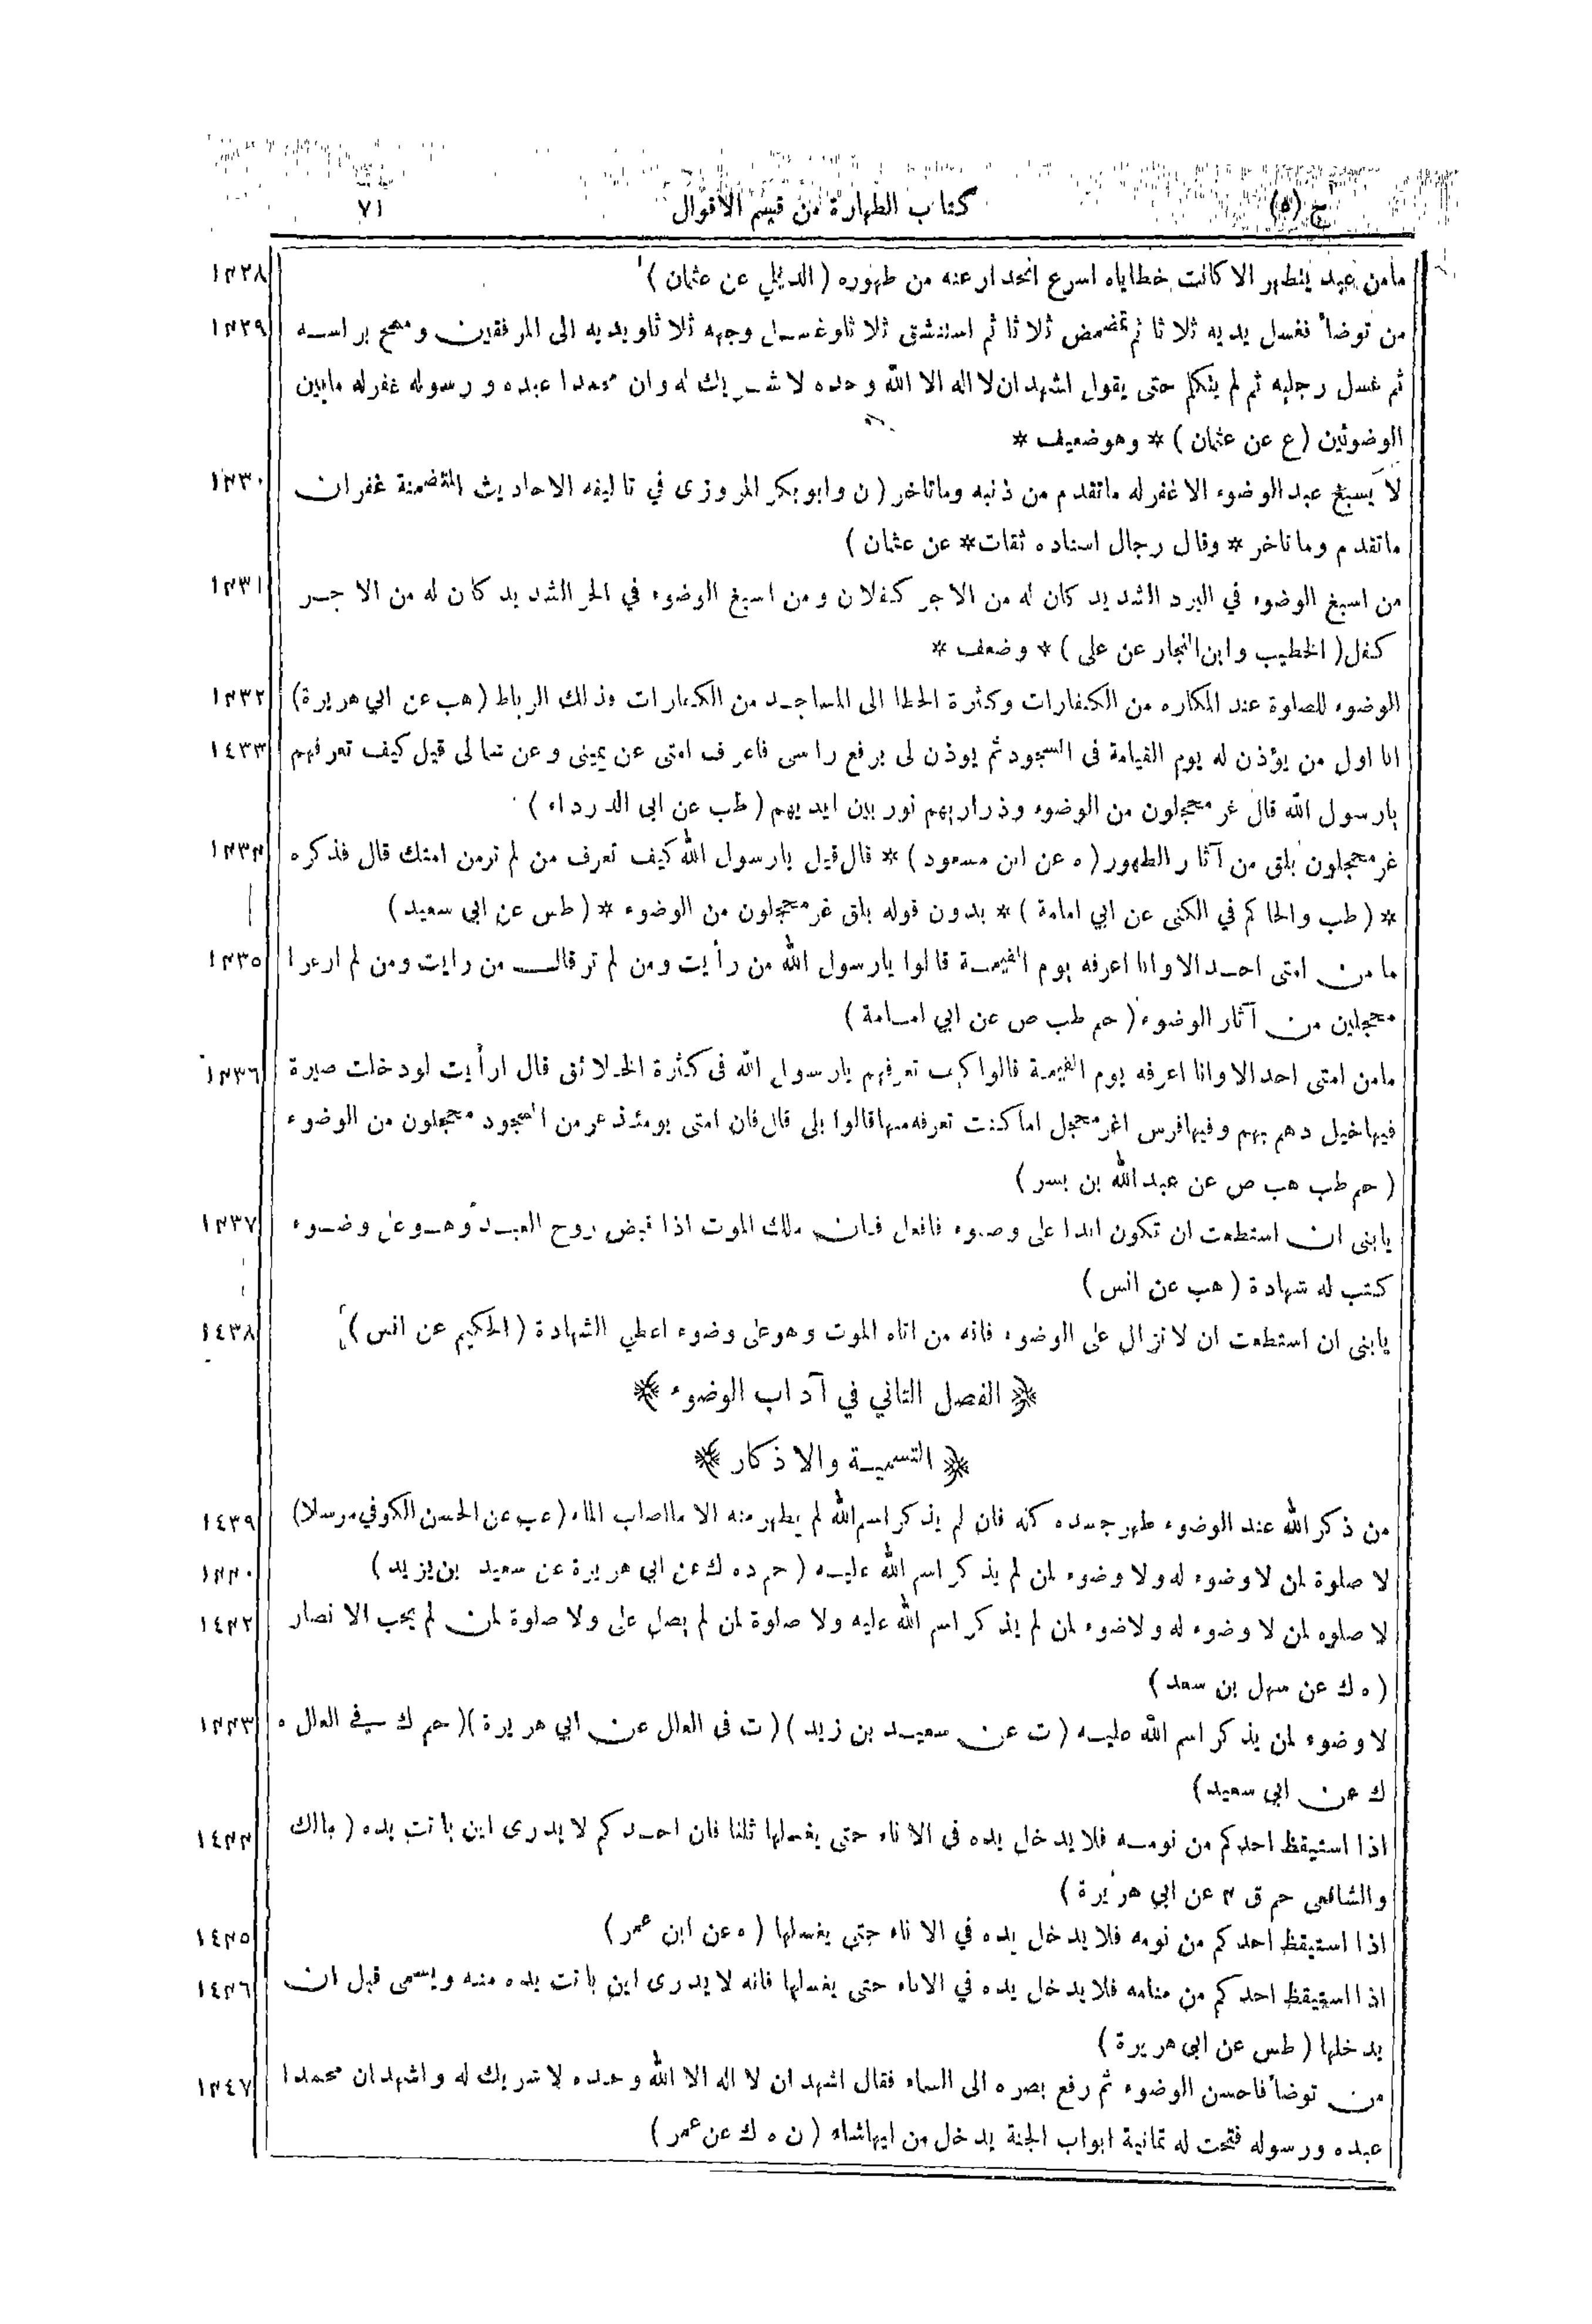 ج (٥) كتاب الطهارة من قسم الاقوال ٧١
مامن عبد يتطهر الا كانت خطاياه اسرع انحدارعنه من طهوره ( الديلمي عن عثمان ) ١٤٢٨
من توضأ فغسل يديه ثلاثا ثم تمضمض ثلاثا ثم استنشق ثلاثا وغسل وجهه ثلاثا ويديه الى المرفقين ومسح براسه ١٤٢٩
ثم غسل رجليه ثم لم يتكلم حتى يقول اشهد ان لا اله الا الله وحده لا شريك له وان محمدا عبده ورسوله غفر له مابين
الوضوئين ( ع عن عثمان ) * وهوضعيف *
لا يسبغ عبد الوضوء الا غفر له ماتقدم من ذنبه وماتاخر ( ن وابوبكر المروزى في تاليفه الاحاديث المتضمنة غفران ١٤٣٠
ماتقدم وماتاخر * وقال رجال اسناده ثقات * عن عثمان )
من اسبغ الوضوء في البرد الشديد كان له من الاجر كفلان ومن اسبغ الوضوء في الحر الشديد كان له من الاجر ١٤٣١
كفل ( الخطيب وابن النجار عن على ) * وضعف *
الوضوء للصلوة عند المكاره من الكفارات وكثرة الخطا الى المساجد من الكفارات وذلك الرباط ( هب عن ابي هريرة ) ١٤٣٢
انا اول من يؤذن له يوم القيامة فى السجود ثم يوذن لى برفع راسى فاعرف امتى عن يمينى وعن شمالى قيل كيف تعرفهم ١٤٣٣
يارسول الله قال غر محجلون من الوضوء وذراريهم نور بين ايديهم ( طب عن ابى الدرداء )
غر محجلون بلق من آثار الطهور ( ه عن ابن مسعود ) * قال قيل يارسول الله كيف تعرف من لم ترمن امتك قال فذكره ١٤٣٤
* ( طب والحاكم في الكنى عن ابي امامة ) * بدون قوله بلق غر محجلون من الوضوء * ( طس عن ابي سعيد )
ما من امتى احد الا وانا اعرفه يوم القيمة قالوا يارسول الله من رأيت ومن لم تر قال من رايت ومن لم ارغرا ١٤٣٥
محجلين من آثار الوضوء ( حم طب ص عن ابي امامة )
مامن امتى احد الا وانا اعرفه يوم القيمة قالوا كيف تعرفهم يارسول الله فى كثرة الخلائق قال ارأيت لودخلت صيرة ١٤٣٦
فيها خيل دهم بهم وفيها فرس اغر محجل اما كنت تعرفه منها قالوا بلى قال فان امتى يومئذ غر من السجود محجلون من الوضوء
( حم طب هب ص عن عبدالله بن بسر )
يابنى ان استطعت ان تكون ابدا على وضوء فافعل فان ملك الموت اذا قبض روح العبد وهو على وضوء ١٤٣٧
كتب له شهادة ( هب عن انس )
يابنى ان استطعت ان لا تزال على الوضوء فانه من اتاه الموت وهوعلى وضوء اعطي الشهادة ( الحكيم عن انس ) ١٤٣٨
﴿ الفصل الثاني في آداب الوضوء ﴾
﴿ التسمية والاذكار ﴾
من ذكر الله عند الوضوء طهر جسده كله فان لم يذكر اسم الله لم يطهر منه الا مااصاب الماء ( عب عن الحسن الكوفي مرسلا ) ١٤٣٩
لا صلوة لمن لا وضوء له ولا وضوء لمن لم يذكر اسم الله عليه ( حم د ه ك عن ابي هريرة عن سعيد بن يزيد ) ١٤٤٠
لا صلوه لمن لا وضوء له ولاضوء لمن لم يذكر اسم الله عليه ولا صلوة لمن لم يصل على ولا صلوة لمن لم يحب الانصار ١٤٤٢
( ه ك عن سهل بن سعد )
لا وضوء لمن يذكر اسم الله عليه ( ت عن سعيد بن زيد ) ( ت فى العلل عن ابي هريرة ) ( حم ك في العلل ه ١٤٤٣
ك عن ابي سعيد )
اذا استيقظ احدكم من نومه فلا يدخل يده فى الاناء حتى يغسلها ثلثا فان احدكم لا يدرى اين باتت يده ( مالك ١٤٤٤
والشافعى حم ق ٤ عن ابي هريرة )
اذا استيقظ احدكم من نومه فلا يدخل يده في الاناء حتى يغسلها ( ه عن ابن عمر ) ١٤٤٥
اذا استيقظ احدكم من منامه فلا يدخل يده في الاناء حتى يغسلها فانه لا يدرى اين باتت يده منه ويسمى قبل ان ١٤٤٦
يدخلها ( طس عن ابى هريرة )
من توضأ فاحسن الوضوء ثم رفع بصره الى السماء فقال اشهد ان لا اله الا الله وحده لا شريك له واشهد ان محمدا ١٤٤٧
عبده ورسوله فتحت له ثمانية ابواب الجنة يدخل من ايهاشاء ( ن ه ك عن عمر )